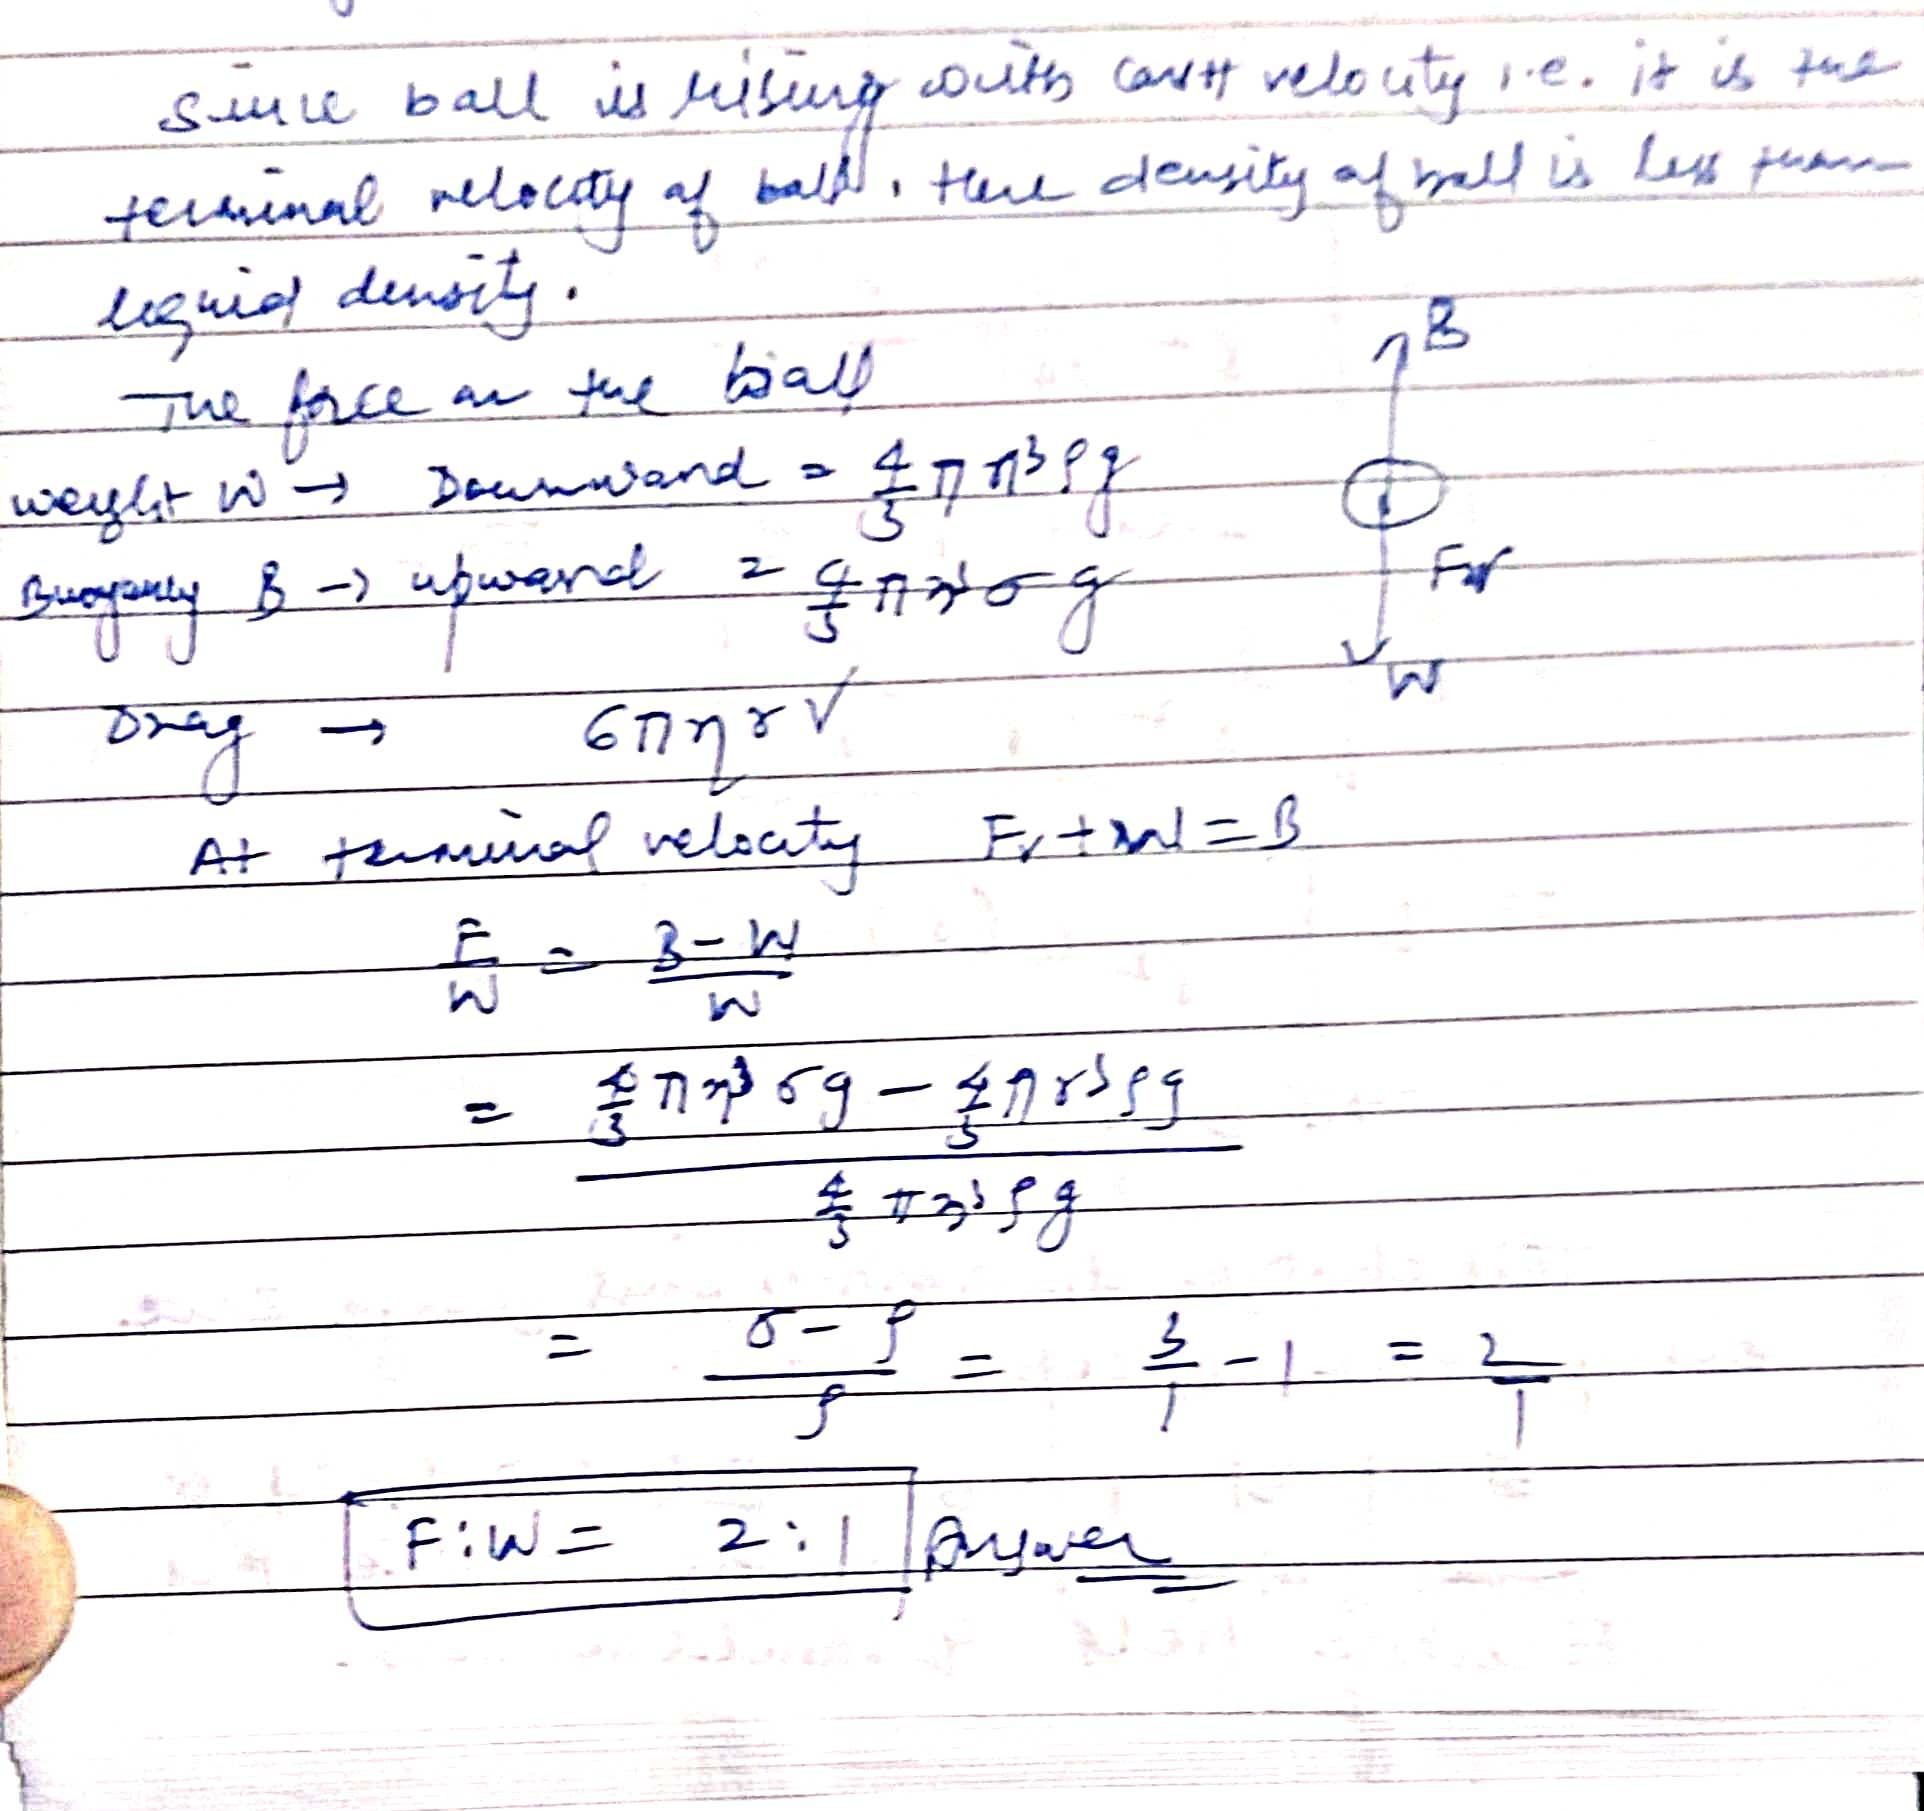 Since ball is rising with constt velocity i.e. it is the
terminal velocity of ball. Here density of ball is less than
liquid density.
The force on the ball
weight W → Downward = 4/3 π r³ ρg
Buoyancy B → upward = 4/3 π r³ σ g
Drag → 6πηrV
B
Fv
W
At terminal velocity Fv + W = B
F/W = B-W/W
= 4/3 π r³ σg - 4/3 π r³ ρg / 4/3 π r³ ρg
= σ-ρ/ρ = 3/1 - 1 = 2/1
F:W = 2:1 Answer